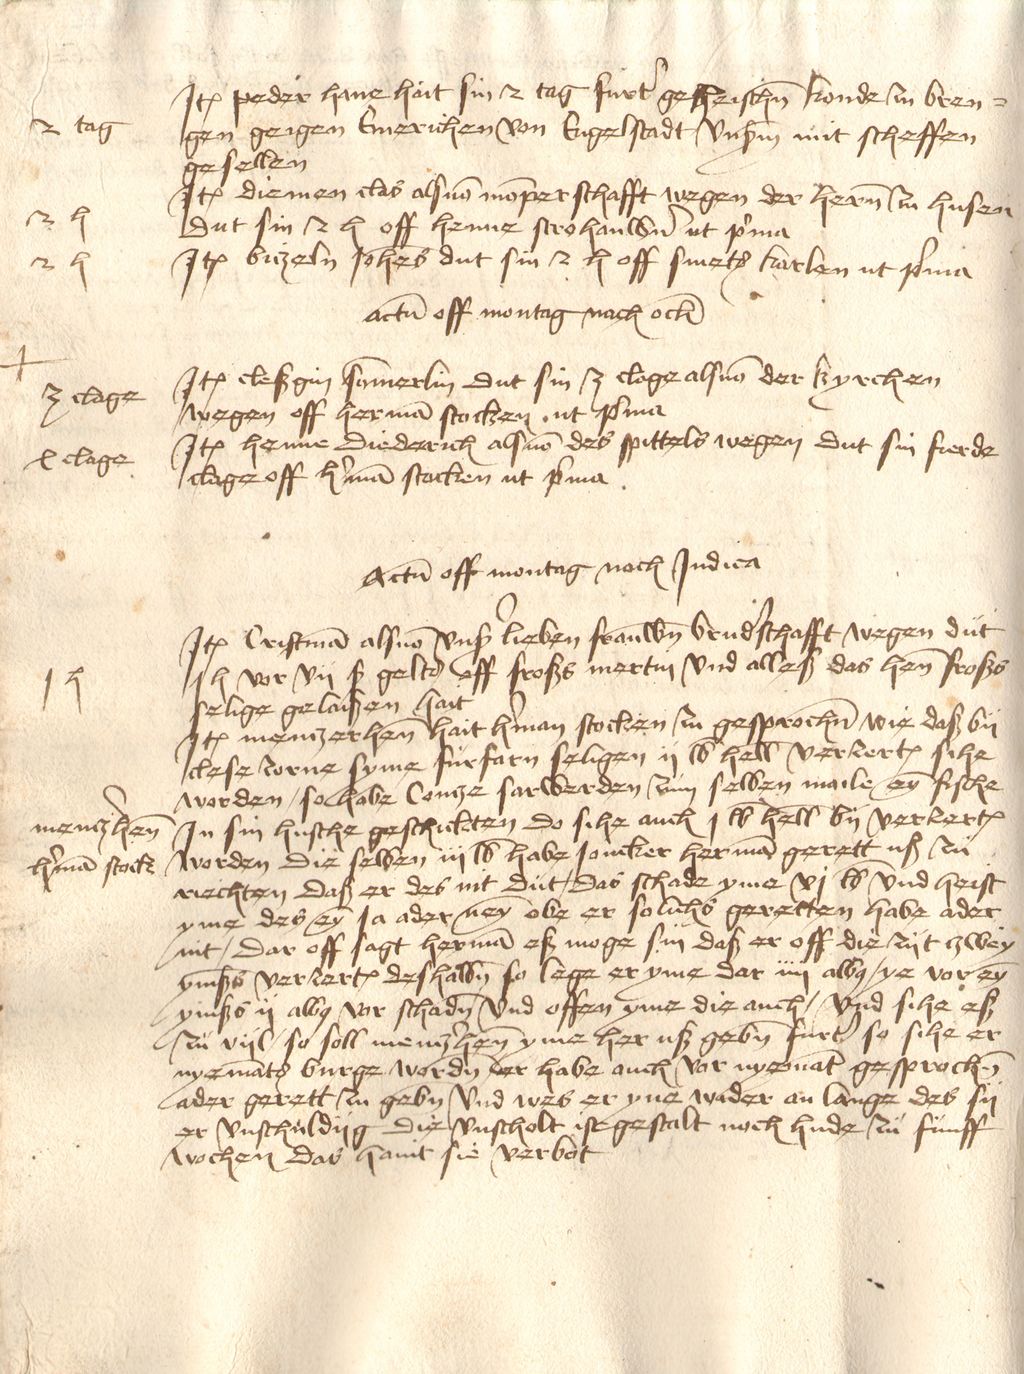 Itꝫ peder hane hait sin 2 tag furt' geheischn̄ konde zu bren=
2 tag
gen geigen Emerichen von Engelstadt vnßm̄ mit scheffen
gesellen
Itꝫ diemen clas alsūo mōperschafft wegen der hern̄ zu husen
2 h
dut sin 2 h off henne strohauwern ut p'ma
2 h
Itꝫ biczeln Joh̄es dut sin 2 h off smets karlen ut p'ma
Actū off montag nach oclī
3 clage
Itꝫ cleßgin som̄erlin dut sin 3 clage alsūo der kyrchen
wegen off hermā stocken ut p'ma
4 clage
Itꝫ henne diederich alsūo des spittels wegen dut sin fierde
clage off h'mā stocken ut p'ma
Actū off montag nach Judica
Itꝫ Cristmā alsūo vnß' lieben frauwn̄ brud'schafft wegen dut
1 h
1 h vor vij ß gelts off froßs mertin vnd alleß das hen̄ froßs
selige gelaißen hait
Itꝫ menczerhen̄ hait h'man stocken zu gesprochn̄ wie daß by
clese zorne syme furfarn seligen ij lb hell' verzertꝫ sihe
worden / so habe Contze sarwerden zum selben maile ey fische
mencz'hen̄
In sin husche geschickten do sihe auch j lb hell' by verzertꝫ
h'mā stock
worden die selben iij lb habe Joncker hermā gerett uß zu
riechten daß er des nit dut / das schade yme vj lb vnd heist
yme des ey Ja ader ney obe er solichs geretten habe ader
nit / Dar off sagt hermā eß moge sin daß er off die zijt zwey
ymßs verzertꝫ deshalbn̄ so lege er yme dar iiij albꝫ / ye vor ey
ymßs ij albꝫ vor schadn̄ vnd offen yme die auch / vnd sihe eß
zu vijl / so soll mencz'hen̄ yme her uß gebn̄ furt' so sihe er
nyemāts burge wordn̄ er habe auch vor nyemāt gesprochn̄
ader gerett zu gebn̄ vnd wes er yne wider an lange des sij
er vnschuldijg die vnscholt ist gestalt noch hude zu funff
wochen das haint sie verbot